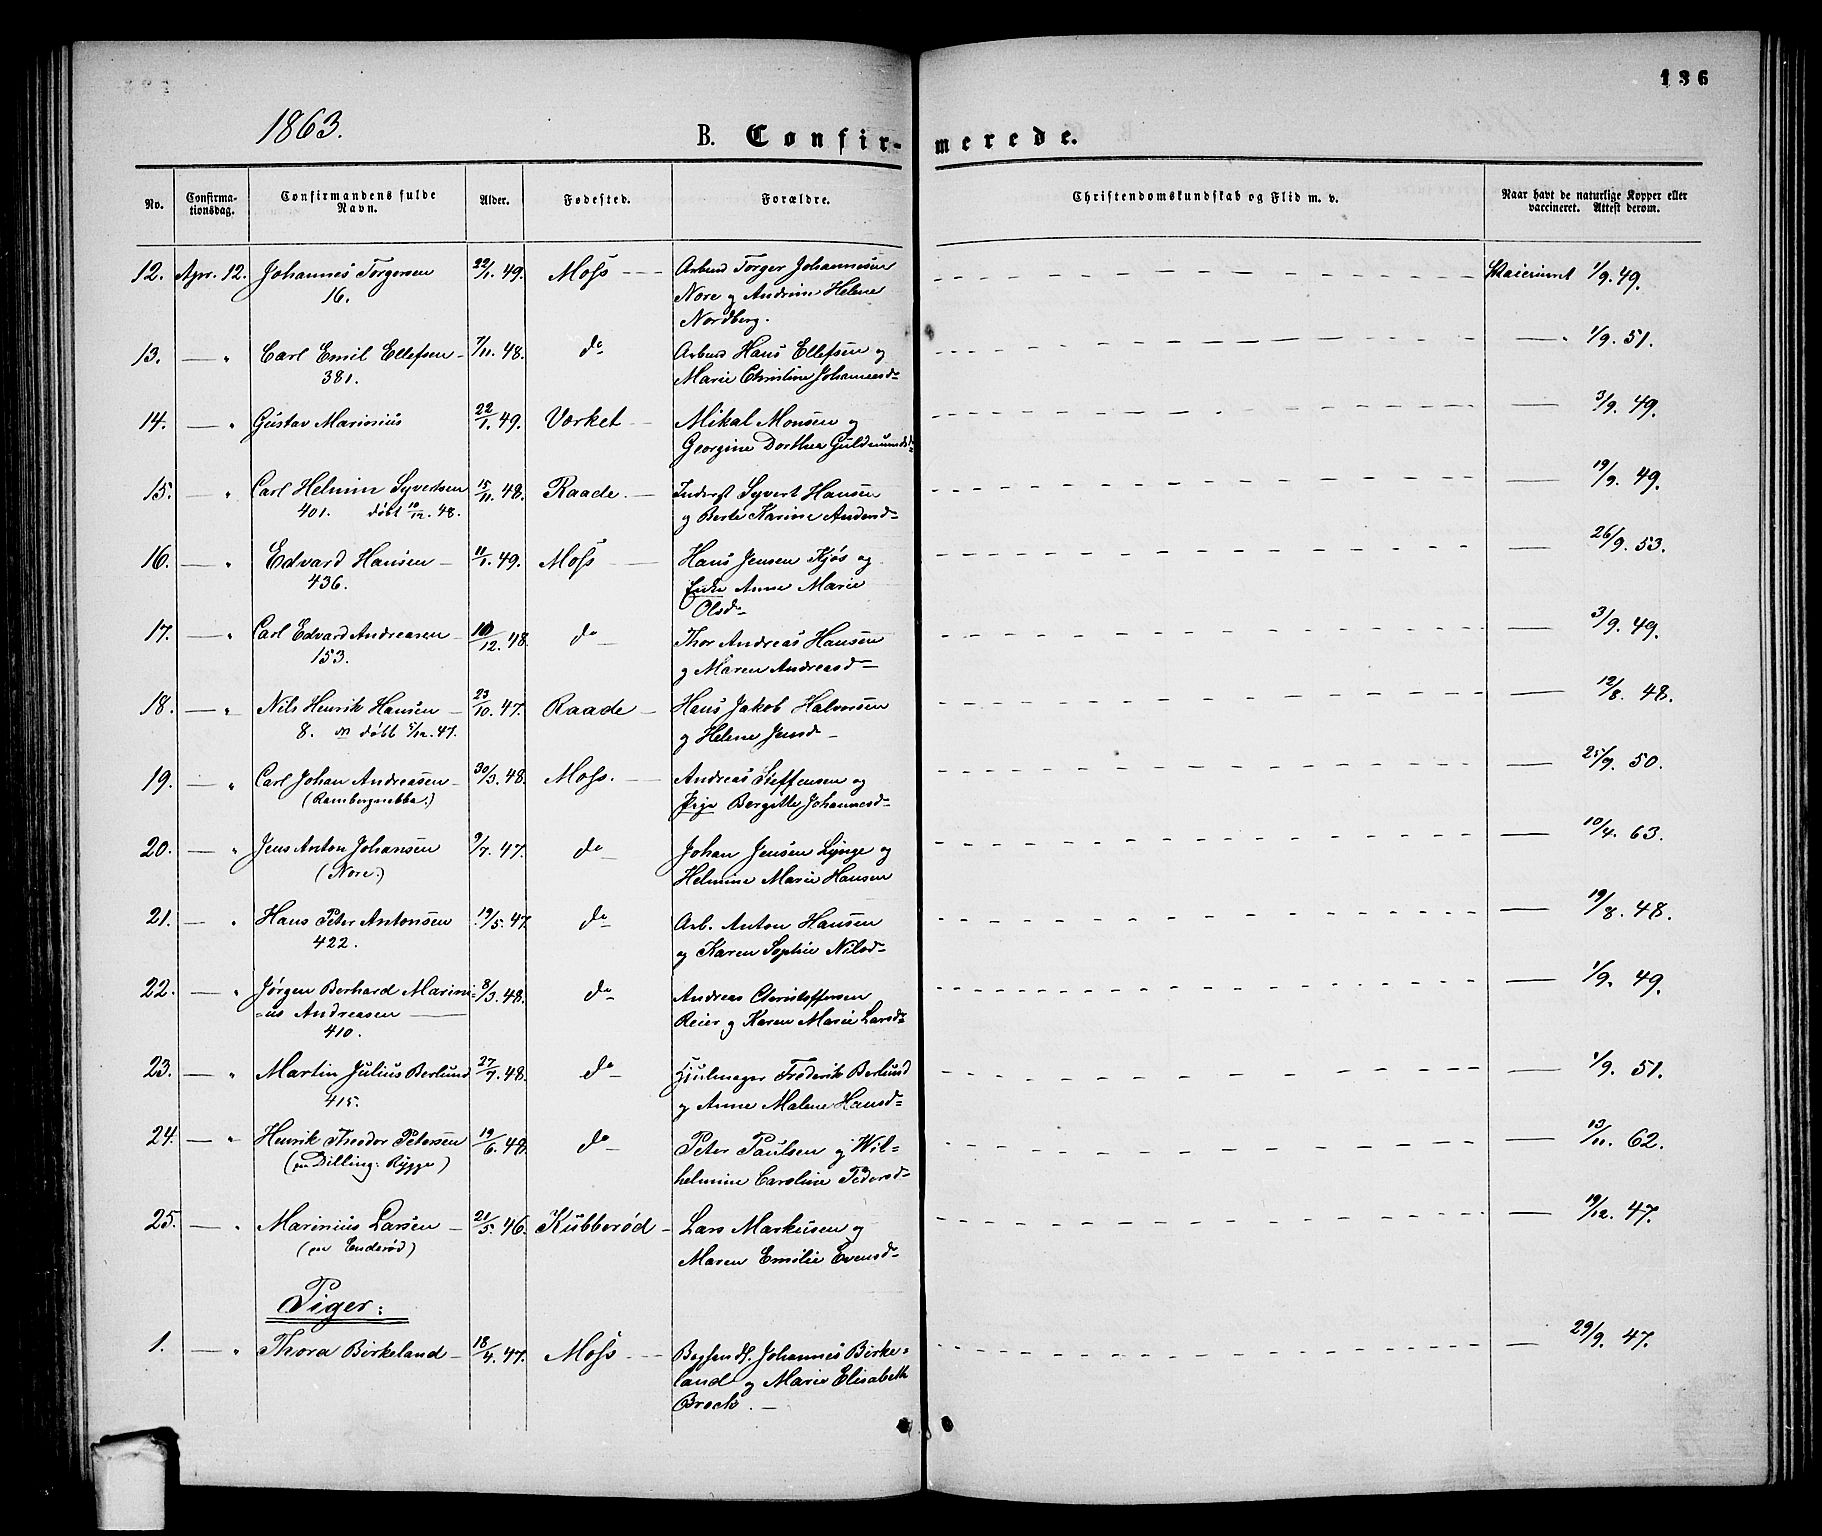 136
1863.
B. Confirmerede.
No. Confirmationsdag. Confirmandens fulde Navn. Alder. Fødested. Forældre. Christendomskundskab og Flid m. v. Naar havt de naturlige Kopper eller vaccineret. Attest derom.
12. Apr. 12. Johannes Torgersen 22/1. 49. Moss Arbmd Torger Johannesen 1/9. 49.
16. Nore og Andrine Helene
Nordberg.
13. — " Carl Emil Ellefsen 7/11. 48. do Arbmd Hans Ellefsen og — " 1/9. 51.
381. Marie Christine Johannesd=
14. — " Gustav Marinius 22/1. 49. Værket Mikal Monsen og — 3/9. 49.
Georgine Dorthea
15. — " Carl Helmin Syvertsen 15/11. 48. Raade. Inderst Syvert Hansen — 19/9. 49.
401. døbt 10/12. 48. og Berte Karine Andersd=
16. — " Edvard Hansen 11/1. 49. Moss Hans Jensen Kjøs og — 26/9. 53.
436. Enke Anne Marie
Olsd=
17. — " Carl Edvard Andreasen 10/12. 48. do Thor Andreas Hansen — 3/9. 49.
153. og Maren Andreasd=
18. — " Nils Henrik Hansen 23/10. 47. Raade Hans Jakob Halvorsen — 12/8. 48.
8. døbt 5/12. 47. og Helene Jensd=
19. — " Carl Johan Andreasen 30/3. 48. Moss. Andreas Steffensen og — 25/9. 50.
(Rambergnebba.) Pige Bergitte Johannesd=
20. — " Jens Anton Johansen 9/7. 47. do Johan Jensen Lynge og — 10/4. 63.
(Nore.) Helmine Marie Hansen
21. — " Hans Peter Antonsen 19/5. 47. do Arb. Anton Hansen — 19/8. 48.
422. og Karen Sophie Nilsd=
22. — " Jørgen Berhard Marini= 8/3. 48. do Andreas Christoffersen — 1/9. 49.
=us Andreasen — Reier og Karen Marie Larsd=
410.
23. — " Martin Julius Berlund 27/7. 48. do Hjulmager Frederik Berlund — 1/9. 51.
415. og Anne Malene Hansd=
24. — " Henrik Theodor Petersen 19/6. 48. do Peter Paulsen og Wil= — 13/11. 62.
(pn Dilling. Rygge) helmine Caroline Pedersd=
25. — " Marinius Larsen 21/5. 46. Kubberød Lars Markusen og — 19/12. 47.
(pn Enderød) Maren Emilie Evensd=
Piger:
1. — " Thora Birkeland 18/4. 47. Moss Johannes Birke= — 29/9. 47.
land og Marie Elisabeth
Brock.